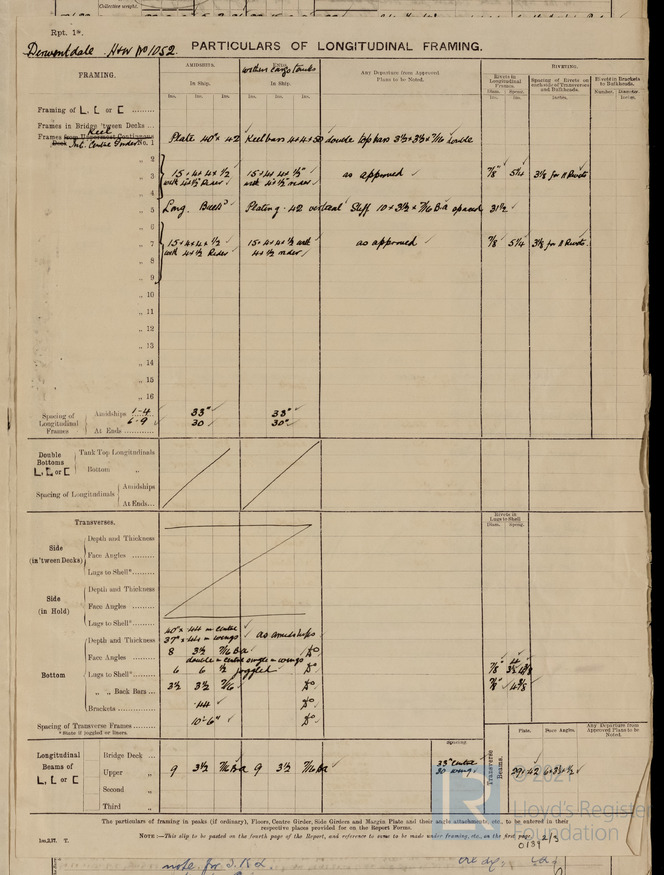 Collective weight.
Rpt. 1*.
Derwentdale H&W No 1052. PARTICULARS OF LONGITUDINAL FRAMING.
FRAMING.
AMIDSHIPS.
In Ship.
Ins. Ins. Ins.
within Cargo tanks
In Ship.
Ins. Ins. Ins.
Any Departure from Approved Plans to be Noted.
RIVETING.
Rivets in Longitudinal Frames.
Diam. Spacing.
Ins. Ins.
Spacing of Rivets on each side of Transverses and Bulkheads.
Inches.
Rivets in Brackets to Bulkheads.
Number. Diameter.
Inches.
Framing of L, [ or [ ........
Frames in Bridge 'tween Decks ...
Keel
Frames from Uppermost Continuous
Deck Int. Centre Girder No. 1 Plate 40" x 42 Keel bars 4 x 4 x 50 double top bars 3½ x 3½ x 7/16 double
„ 2
„ 3 15 x 4 x 4 x ½ 15 x 4 x 4 x ½" as approved 7/8" 5¼ 3⅛ for 11 Rivets
„ 4 with 4 x ½" Rider with 4 x ½" rider
„ 5 Long. Bulkd Plating .42 vertical Stiff 10 x 3½ x 7/16 BA spaced 31½
„ 6
„ 7 15 x 4 x 4 x ½ 15 x 4 x 4 x ½ with as approved 7/8 5¼ 3⅛ for 11 Rivets.
„ 8 with 4 x ½ Rider 4 x ½ rider
„ 9
„ 10
„ 11
„ 12
„ 13
„ 14
„ 15
„ 16
Spacing of Longitudinal Frames
Amidships 1-4 33" 33"
6-9 30 30"
At Ends ..........
Double Bottoms L, [ or [
Tank Top Longitudinals
Bottom „
Spacing of Longitudinals
Amidships
At Ends...
Transverses.
Rivets in Lugs to Shell
Diam. Spacing.
Side (in 'tween Decks)
Depth and Thickness
Face Angles .........
Lugs to Shell* .......
Side (in Hold)
Depth and Thickness
Face Angles .........
Lugs to Shell* .......
Bottom
40" x .44 in centre
Depth and Thickness 37" x .44 in wings as amidships
Face Angles ......... 8 3½ 7/16 BA do
double in centre single in wings
Lugs to Shell* ....... 6 6 ½ joggled do
„ „ Back Bars ... 3½ 3½ 7/16 do
Brackets ......... .44 do
Spacing of Transverse Frames ......... 10'-6" do
*State if joggled or liners.
Longitudinal Beams of L, [ or [
Bridge Deck ...
Upper „ 9 3½ 7/16 BA 9 3½ 7/16 BA
Second „
Third „
Spacing.
33" Centre
30 wings
Transverse Beams.
Plate. Face Angles. Any Departure from Approved Plans to be Noted.
The particulars of framing in peaks (if ordinary), Floors, Centre Girder, Side Girders and Margin Plate and their angle attachments, etc., to be entered in their
respective places provided for on the Report Forms.
NOTE:—This slip to be pasted on the fourth page of the Report, and reference to same to be made under framing, etc., on the first page.
© 2021
Lloyd's Register
Foundation
0139 1/3